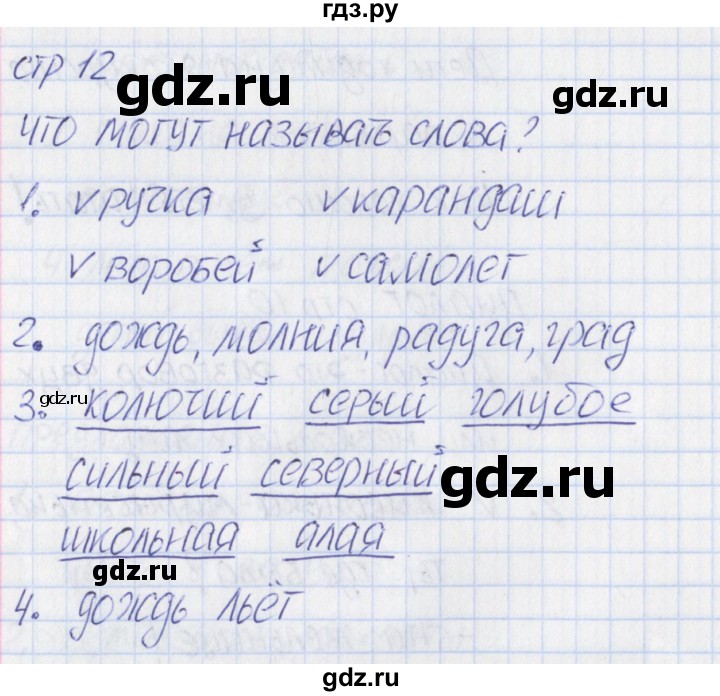 гдз.ру
стр 12
gdz.ru
что могут называть слова?
1. v ручка v карандаш
v воробей v самолет
2. дождь, молния, радуга, град
gdz.ru
3. колючий серый голубое
сильный северный
gdz.ru
школьная алая
gdz.ru
4. дождь льёт
gdz.ru